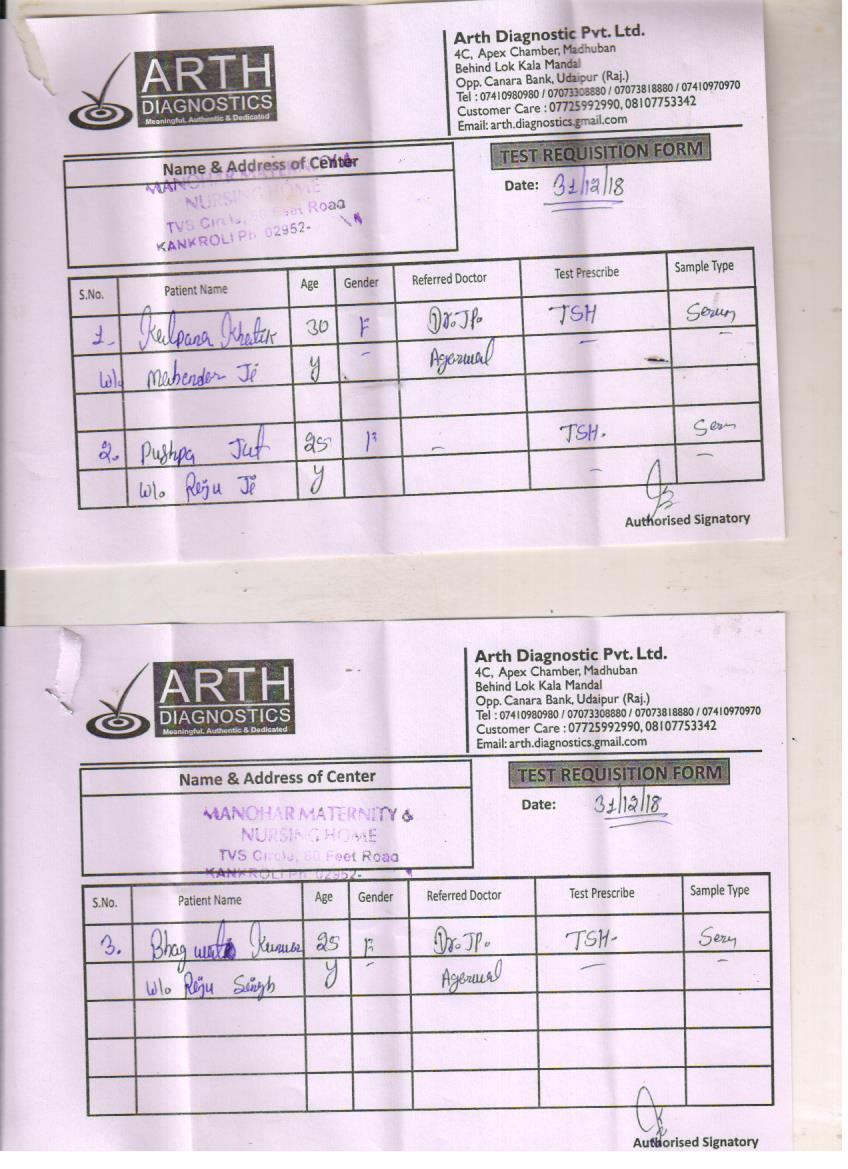 ARTH
DIAGNOSTICS
Meaningful, Authentic & Dedicated
Arth Diagnostic Pvt. Ltd.
4C, Apex Chamber, Madhuban
Behind Lok Kala Mandal
Opp. Canara Bank, Udaipur (Raj.)
Tel : 07410980980 / 07073308880 / 07073818880 / 07410970970
Customer Care : 07725992990, 08107753342
Email: arth.diagnostics.gmail.com
Name & Address of Center
MANOHAR MATERNITY &
NURSING HOME
TVS Circle, 60 Feet Road
KANKROLI Ph 02952-
TEST REQUISITION FORM
Date: 31/12/18
S.No. Patient Name Age Gender Referred Doctor Test Prescribe Sample Type
1. Kalpana Khatik 30 F Dr. J.P. TSH Serum
w/o Mahender Ji y - Agarwal - -
2. Pushpa Jat 25 F - TSH. Serum
w/o Raju Ji y - -
Authorised Signatory
ARTH
DIAGNOSTICS
Meaningful, Authentic & Dedicated
Arth Diagnostic Pvt. Ltd.
4C, Apex Chamber, Madhuban
Behind Lok Kala Mandal
Opp. Canara Bank, Udaipur (Raj.)
Tel : 07410980980 / 07073308880 / 07073818880 / 07410970970
Customer Care : 07725992990, 08107753342
Email: arth.diagnostics.gmail.com
Name & Address of Center
MANOHAR MATERNITY &
NURSING HOME
TVS Circle, 60 Feet Road
KANKROLI Ph 02952-
TEST REQUISITION FORM
Date: 31/12/18
S.No. Patient Name Age Gender Referred Doctor Test Prescribe Sample Type
3. Bhagwati Kunwar 25 F Dr. J.P. TSH- Serum
w/o Raju Singh y - Agarwal - -
Authorised Signatory